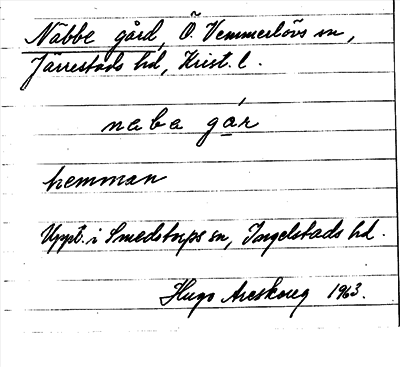 Näbbe gård, Ö. Vemmerlövs sn,
Järrestads hd, Krist. l.
naba gár
hemman
Uppt. i Smedstorps sn, Ingelstads hd.
Hugo Areskoug 1963.